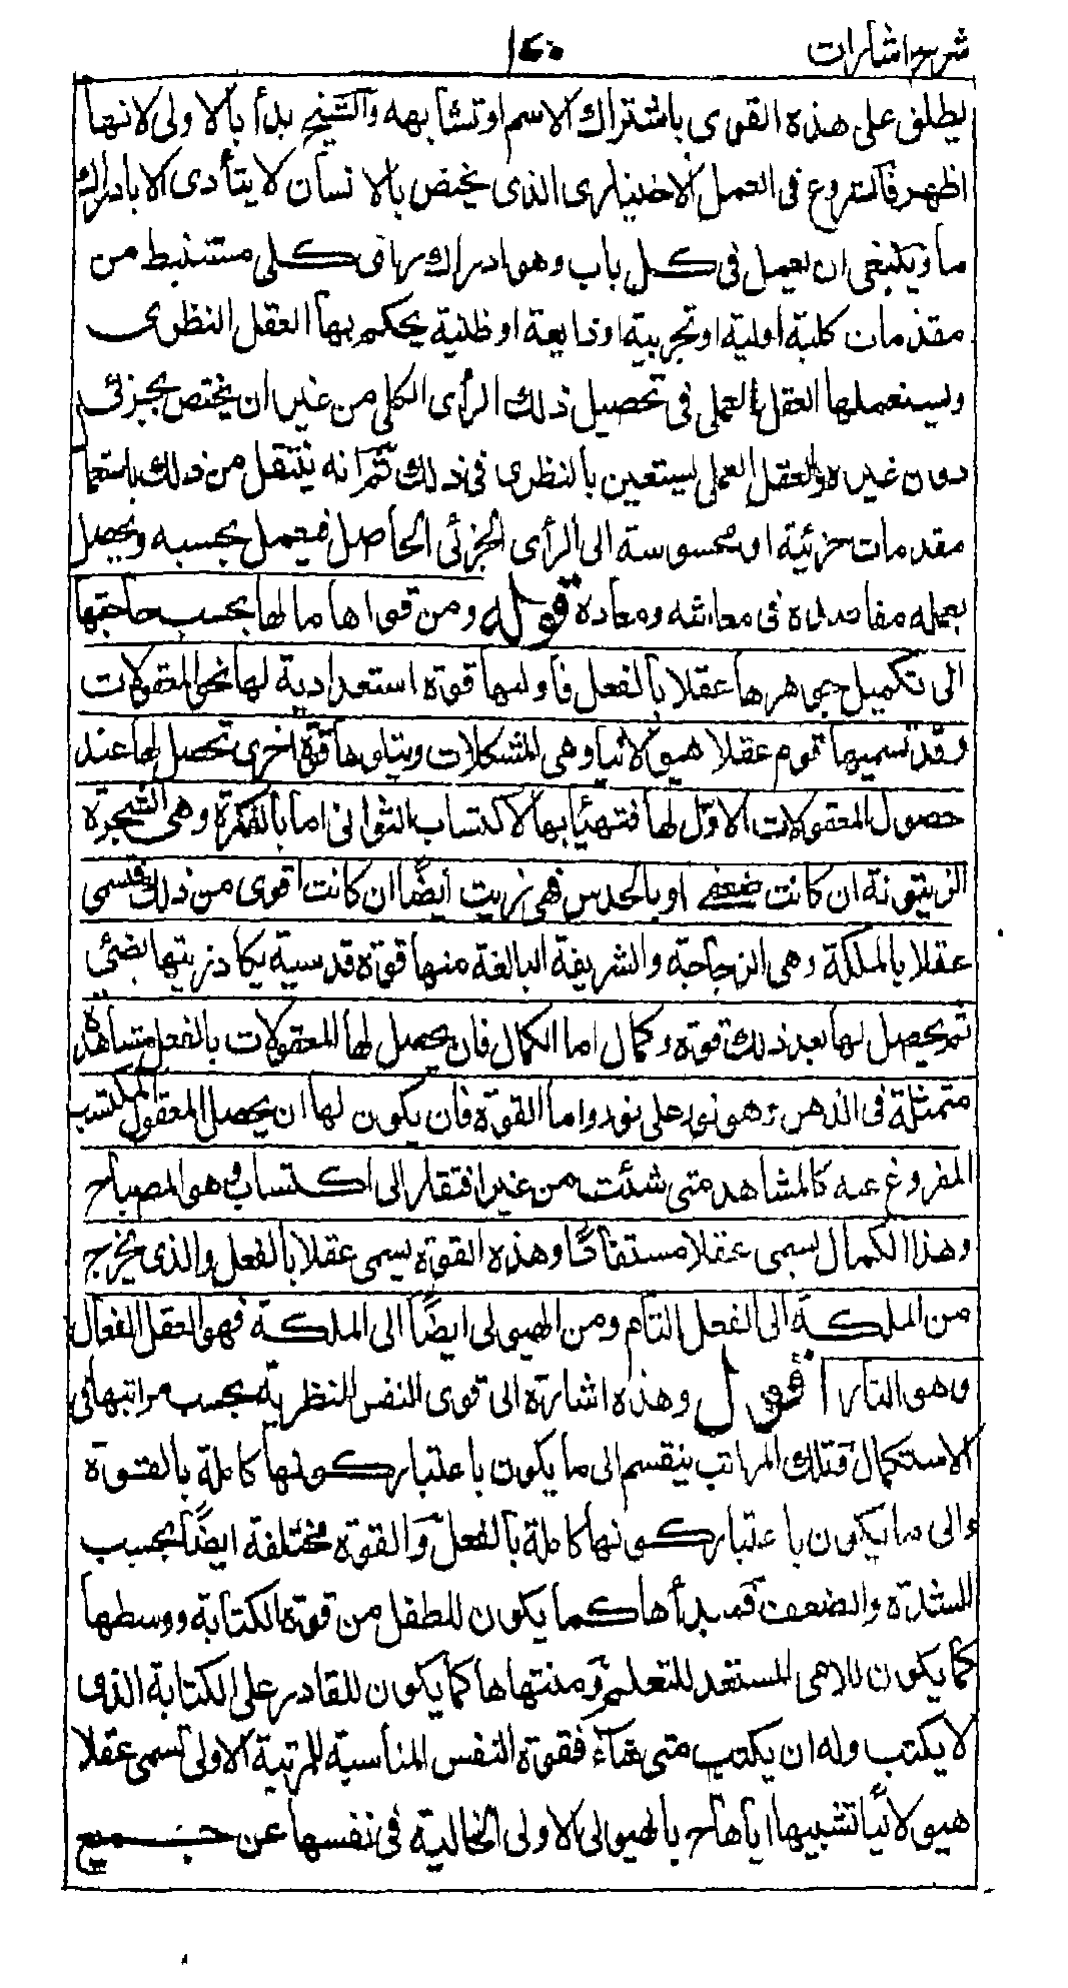 شرح اشارات
١٤٠
يطلق على هذه القوى باشتراك الاسم او تشابهه والشيخ بدأ بالاولى لانها
اظهر فالشروع فى العمل الاختيارى الذى يختص بالانسان لا يتأدى الا بادراك
ما ينبغى ان يعمل فى كل باب وهو ادراك راى كلى مستنبط من
مقدمات كلية اولية او تجربية او ذايعة او ظنية يحكم بها العقل النظرى
ويستعملها العقل العملى فى تحصيل ذلك الرأى الكلى من غير ان يختص بجزئى
دون غيره والعقل العملى يستعين بالنظرى فى ذلك ثم انه ينتقل من ذلك باستعمال
مقدمات جزئية او محسوسة الى الرأى الجزئى الحاصل فيعمل بحسبه ويحصل
بعمله مقاصده فى معاشه ومعاده قوله ومن قواها ما لها بحسب حاجتها
الى تكميل جوهرها عقلا بالفعل فاولها قوة استعدادية لها نحو المعقولات
وقد تسميها قوم عقلا هيولانيا وهى المشكلات ويتلوها قوة اخرى تحصل لها عند
حصول المعقولات الاول لها فتهيئا بها لاكتساب الثوانى اما بالفكرة وهى الشجرة
الزيتونة ان كانت ضعفى او بالحدس فهى زيت ايضًا ان كانت اقوى من ذلك فتسمى
عقلا بالملكة وهى الزجاجة والشريفة البالغة منها قوة قدسية يكاد زيتها يضئى
ثم يحصل لها بعد ذلك قوة وكمال اما الكمال فان يحصل لها المعقولات بالفعل مشاهدة
متمثلة فى الذهن وهو نور على نور واما القوة فان يكون لها ان يحصل المعقول المكتسب
المفروغ عنه كالمشاهد متى شئت من غير افتقار الى اكتساب وهو المصباح
وهذا الكمال يسمى عقلا مستفادًا وهذه القوة يسمى عقلا بالفعل والذى يخرج
من الملكة الى الفعل التام ومن الهيولى ايضًا الى الملكة فهو العقل الفعال
وهو النار اقول وهذه اشارة الى قوى النفس النظرية بحسب مراتبها فى
الاستكمال وتلك المراتب ينقسم الى ما يكون باعتبار كونها كاملة بالقوة
والى ما يكون باعتبار كونها كاملة بالفعل والقوة مختلفة ايضًا بحسب
الشدة والضعف فمبدأها كما يكون للطفل من قوة الكتابة ووسطها
كما يكون للامى المستعد للتعلم ومنتهاها كما يكون للقادر على الكتابة الذى
لا يكتب وله ان يكتب متى شاء فقوة النفس المناسبة للمرتبة الاولى تسمى عقلا
هيولانيًا تشبيها اياها ح بالهيولى الاولى الخالية فى نفسها عن جميع